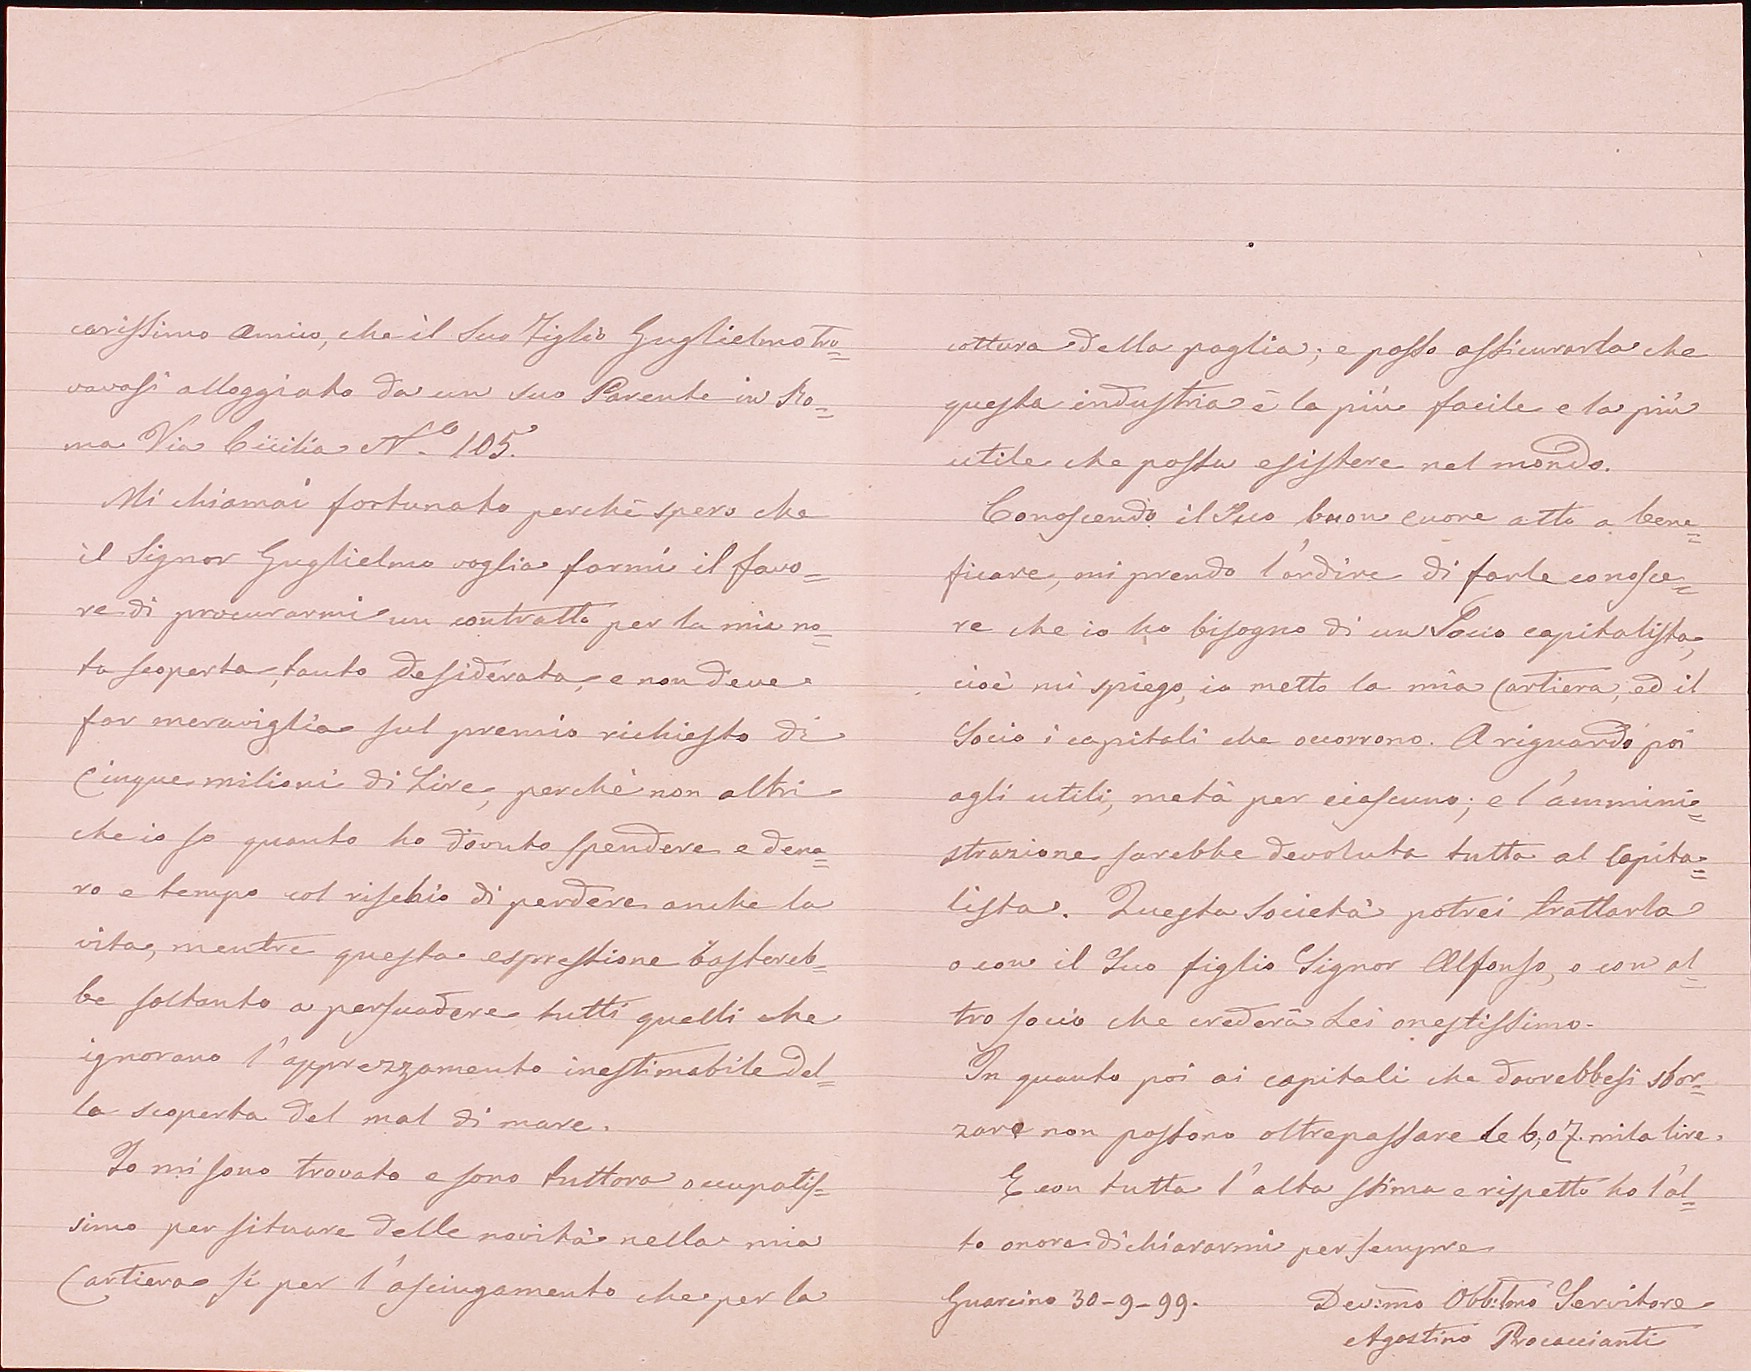 carissimo amico, che il Suo Figlio Guglielmo tro=
vavasi alloggiato da un suo Parente in Ro=
ma Via Cicilia N.o 105.
Mi chiamai fortunato perchè spero che
il Signor Guglielmo voglia farmi il favo=
re di procurarmi un contratto per la mia no=
ta scoperta, tanto desiderata, e non deve
far meraviglia sul premio richiesto di
Cinque milioni di Lire, perchè non altri
che io so quanto ho dovuto spendere e dena=
ro e tempo col rischio di perdere anche la
vita, mentre questa espressione bastereb=
be soltanto a persuadere tutti quelli che
ignorano l'apprezzamento inestimabile del=
la scoperta del mal di mare.
Io mi sono trovato e sono tuttora occupatis=
simo per situare delle novità nella mia
Cartiera sì per l'asciugamento che per la
cottura della paglia; e posso assicurarla che
questa industria è la più facile e la più
utile che possa esistere nel mondo.
Conoscendo il Suo buon cuore atto a bene=
ficare, mi prendo l'ardire di farle conosce=
re che io ho bisogno di un Socio capitalista,
cioè mi spiego, io metto la mia Cartiera, ed il
Socio i capitali che occorrono. A riguardo poi
agli utili, metà per ciascuno; e l'ammini=
strazione sarebbe devoluta tutta al Capita=
lista. Questa Società potrei trattarla
o con il Suo figlio Signor Alfonso, o con al=
tro socio che crederà Lei onestissimo.
In quanto poi ai capitali che dovrebbesi sbor=
zare non possono oltrepassare le 6, o 7. mila lire.
E con tutta l'alta stima e rispetto ho l'al=
to onore di chiararmi per sempre
Guarcino 30-9-99.
Dev:mo Obb:tmo Servitore
Agostino Procaccianti